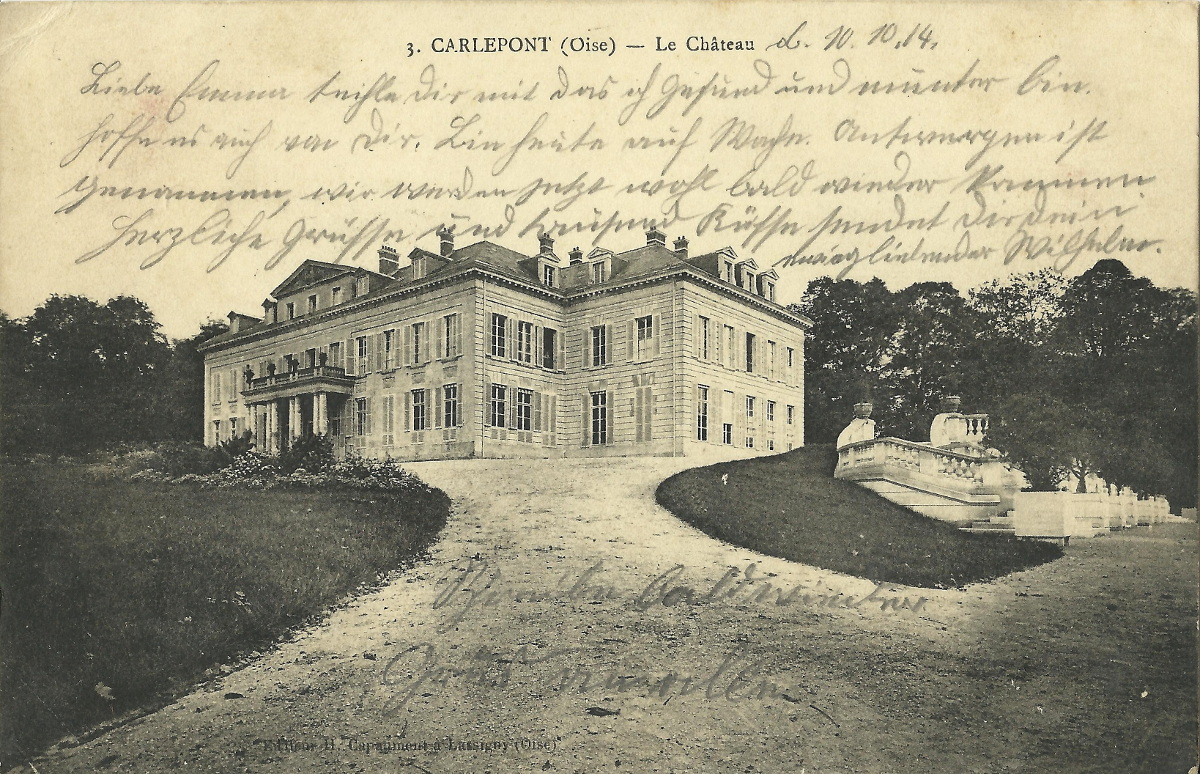 3. CARLEPONT (Oise) — Le Château d. 10.10.14.
Liebe Emma teihle Dir mit das ich Gesund und munter bin.
hoffe es auch von Dir. Bin heute auf Wache. Antwergen ist
Genommen, wir werden jetzt wohl bald wieder kommen
Herzliche Grüsse und tausend Küsse sendet Dir Dein
Wilhelm.
Schreibe bald wieder
Grus an alle
Editeur H. Capaumont à Lassigny (Oise)